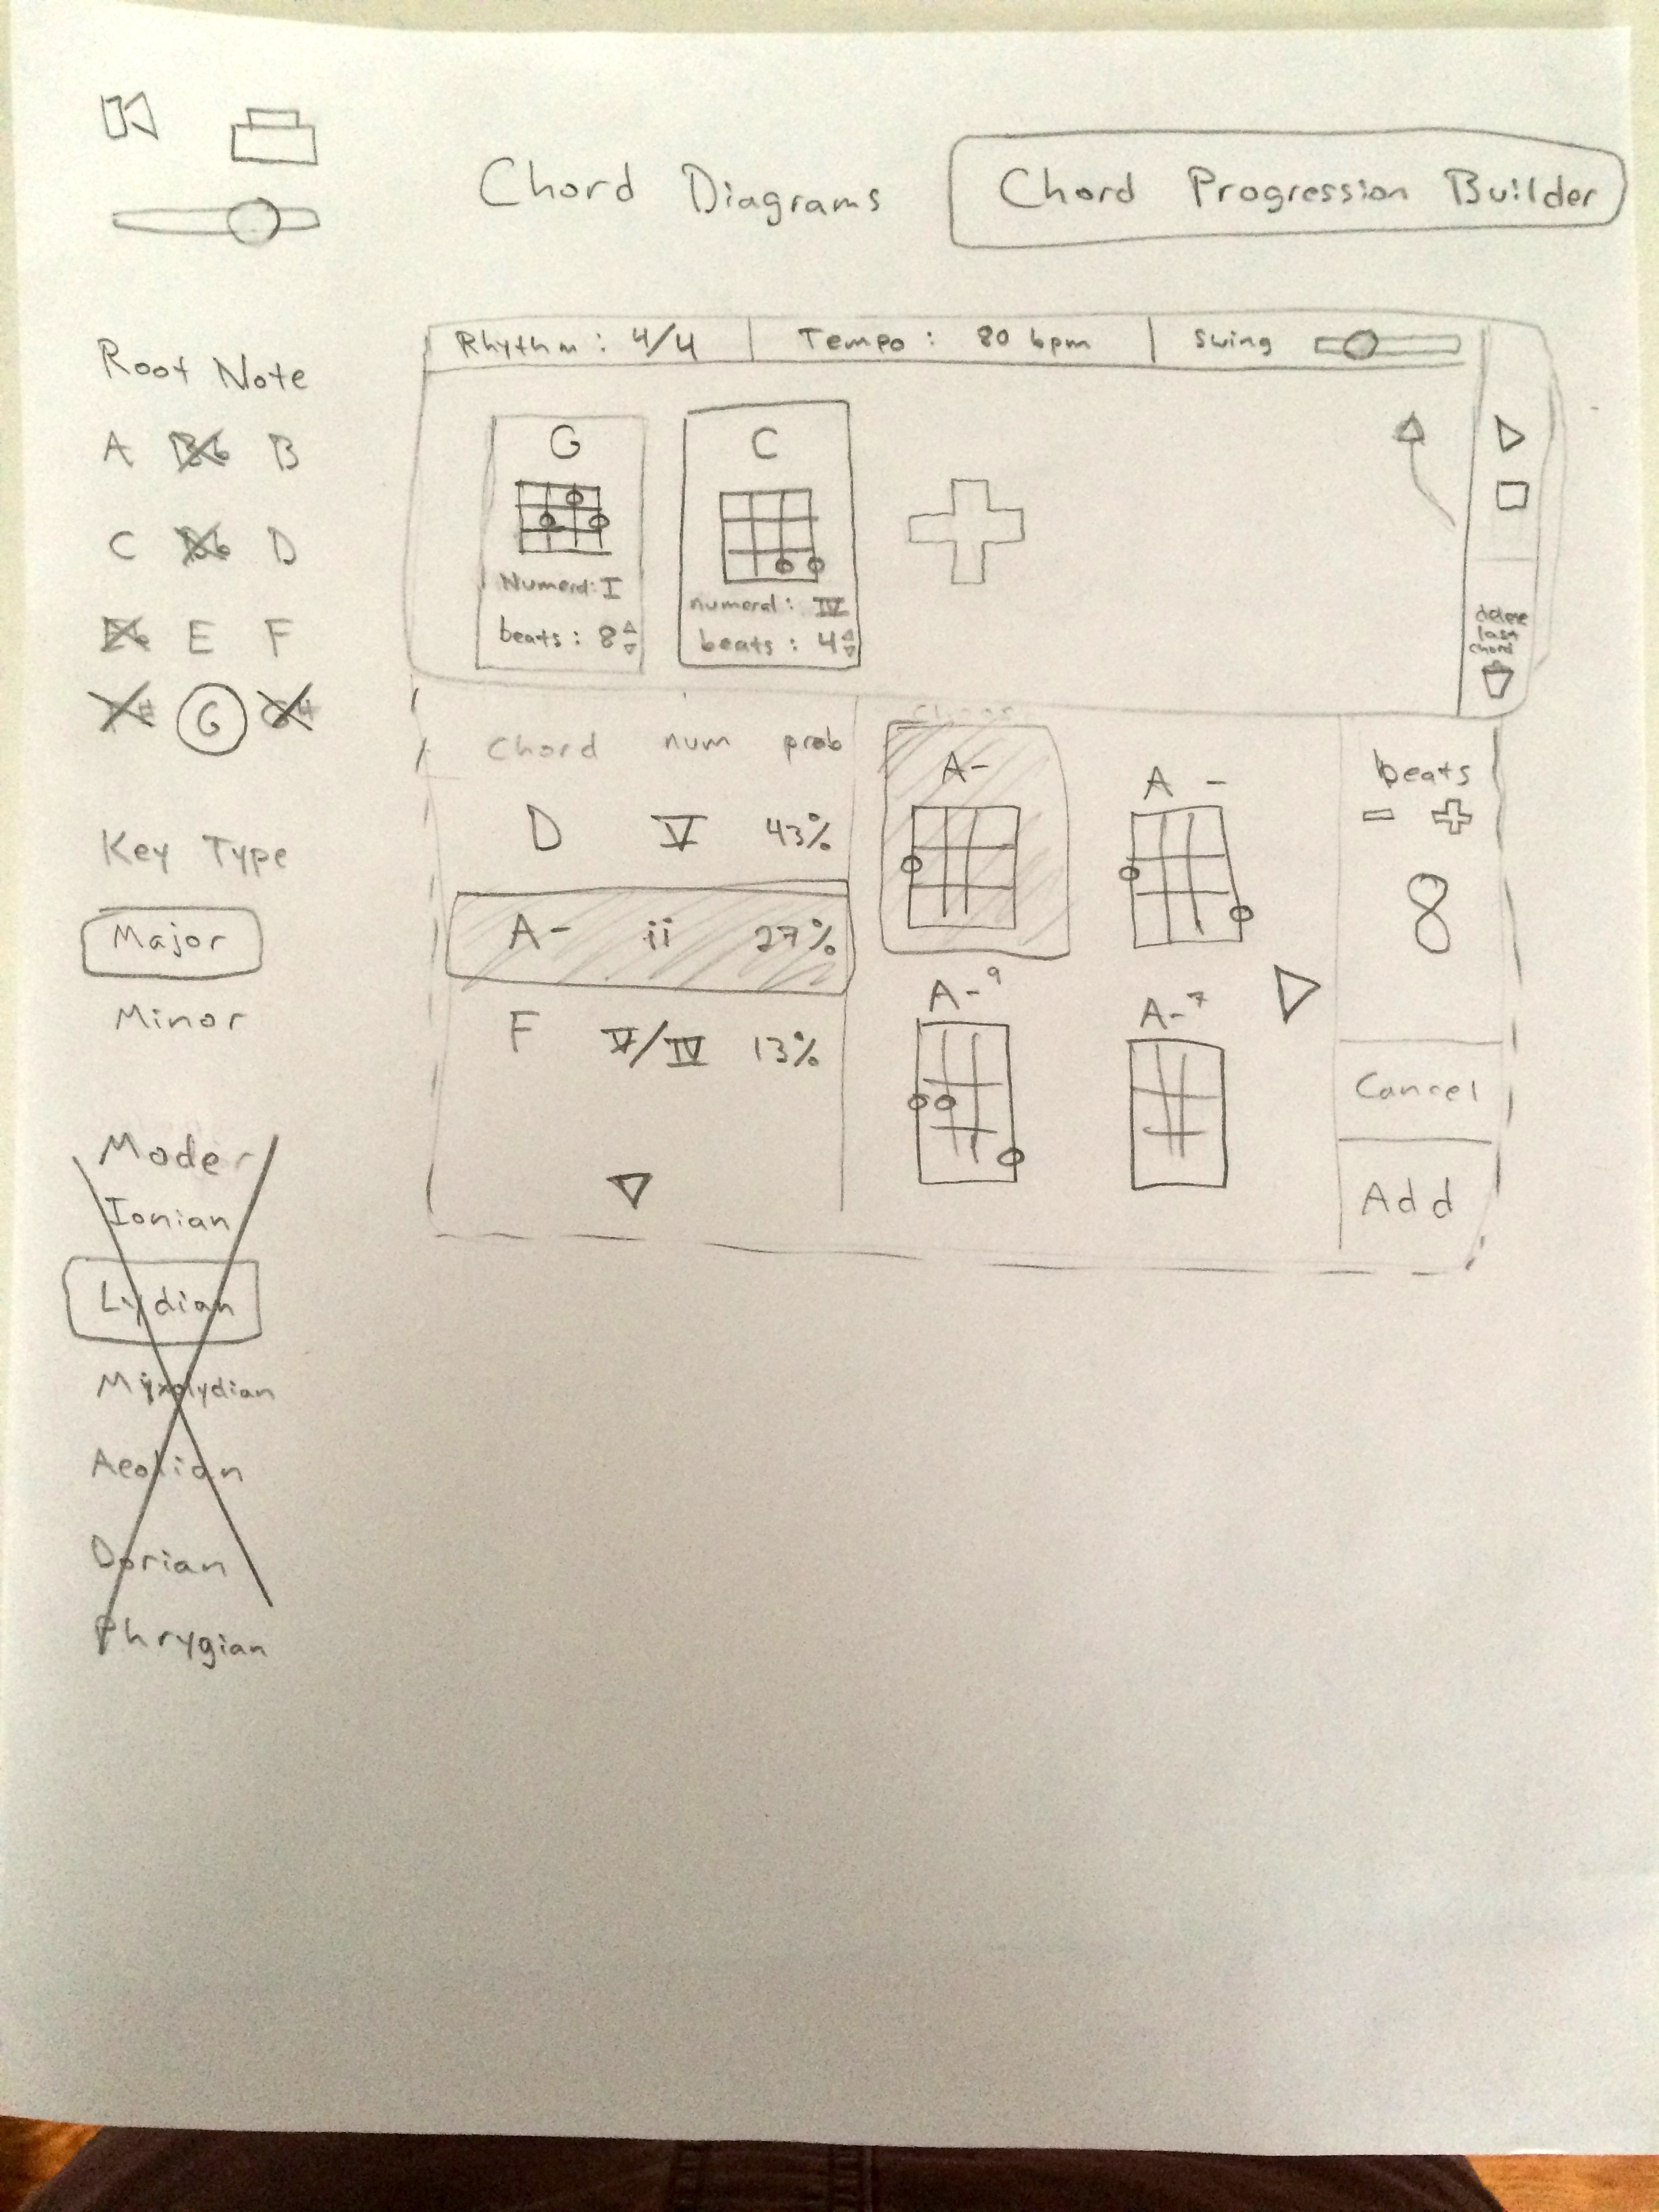 Chord Diagrams
Chord Progression Builder
Root Note
A Bb B
C D
E F
G
Key Type
Major
Minor
Modes
Ionian
Lydian
Mixolydian
Aeolian
Dorian
Phrygian
Rhythm : 4/4
Tempo : 80 bpm
Swing
G
Numeral: I
beats : 8
C
numeral : IV
beats : 4
delete
last
chord
chord num prob
D V 43%
A- ii 27%
F V/IV 13%
A-
A -
A-9
A-7
beats
8
Cancel
Add